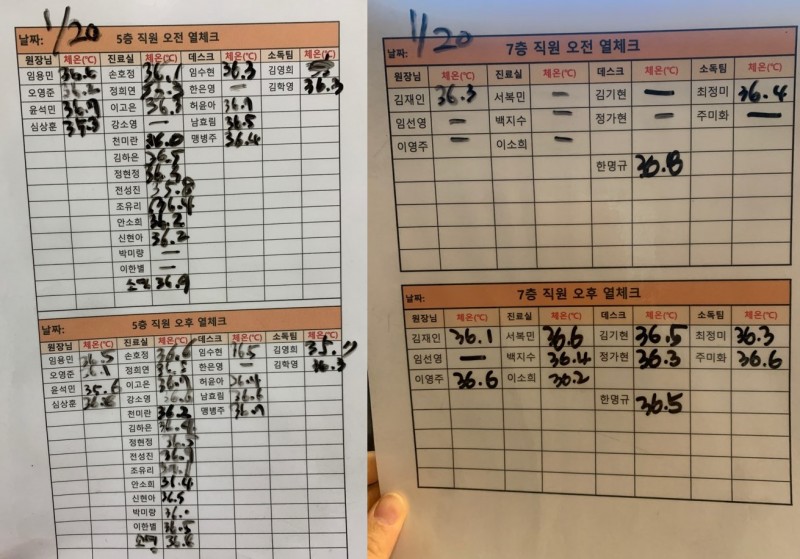 1/20
날짜: 5층 직원 오전 열체크
원장님 체온(℃) 진료실 체온(℃) 데스크 체온(℃) 소독팀 체온(℃)
임용민 36.6 손호정 36.1 임수현 36.3 김영희
오영준 정희연 한은영 - 김학영 36.3
윤석민 36.9 이고은 36.3 허윤아 36.9
심상훈 강소영 - 남효림 36.5
천미란 36.0 맹병주 36.4
김하은 36.5
정현정 36.3
전성진 35.8
조유리 36.4
안소희 36.2
신현아 36.2
박미량 -
이한별 -
36.9
날짜: 5층 직원 오후 열체크
원장님 체온(℃) 진료실 체온(℃) 데스크 체온(℃) 소독팀 체온(℃)
임용민 36.5 손호정 36.6 임수현 36.5 김영희
오영준 36.1 정희연 한은영 - 김학영 36.3
윤석민 35.6 이고은 36.9 허윤아 36.4
심상훈 36.6 강소영 36.6 남효림 36.6
천미란 36.2 맹병주 36.9
김하은 36.4
정현정
전성진 36.9
조유리
안소희 36.4
신현아 36.5
박미량 36.0
이한별 36.5
36.6
1/20
날짜: 7층 직원 오전 열체크
원장님 체온(℃) 진료실 체온(℃) 데스크 체온(℃) 소독팀 체온(℃)
김재인 36.3 서복민 - 김기현 - 최정미 36.4
임선영 - 백지수 - 정가현 - 주미화 -
이영주 - 이소희 -
한명규 36.8
날짜: 7층 직원 오후 열체크
원장님 체온(℃) 진료실 체온(℃) 데스크 체온(℃) 소독팀 체온(℃)
김재인 36.1 서복민 36.6 김기현 36.5 최정미 36.3
임선영 - 백지수 36.4 정가현 36.3 주미화 36.6
이영주 36.6 이소희 36.2
한명규 36.5